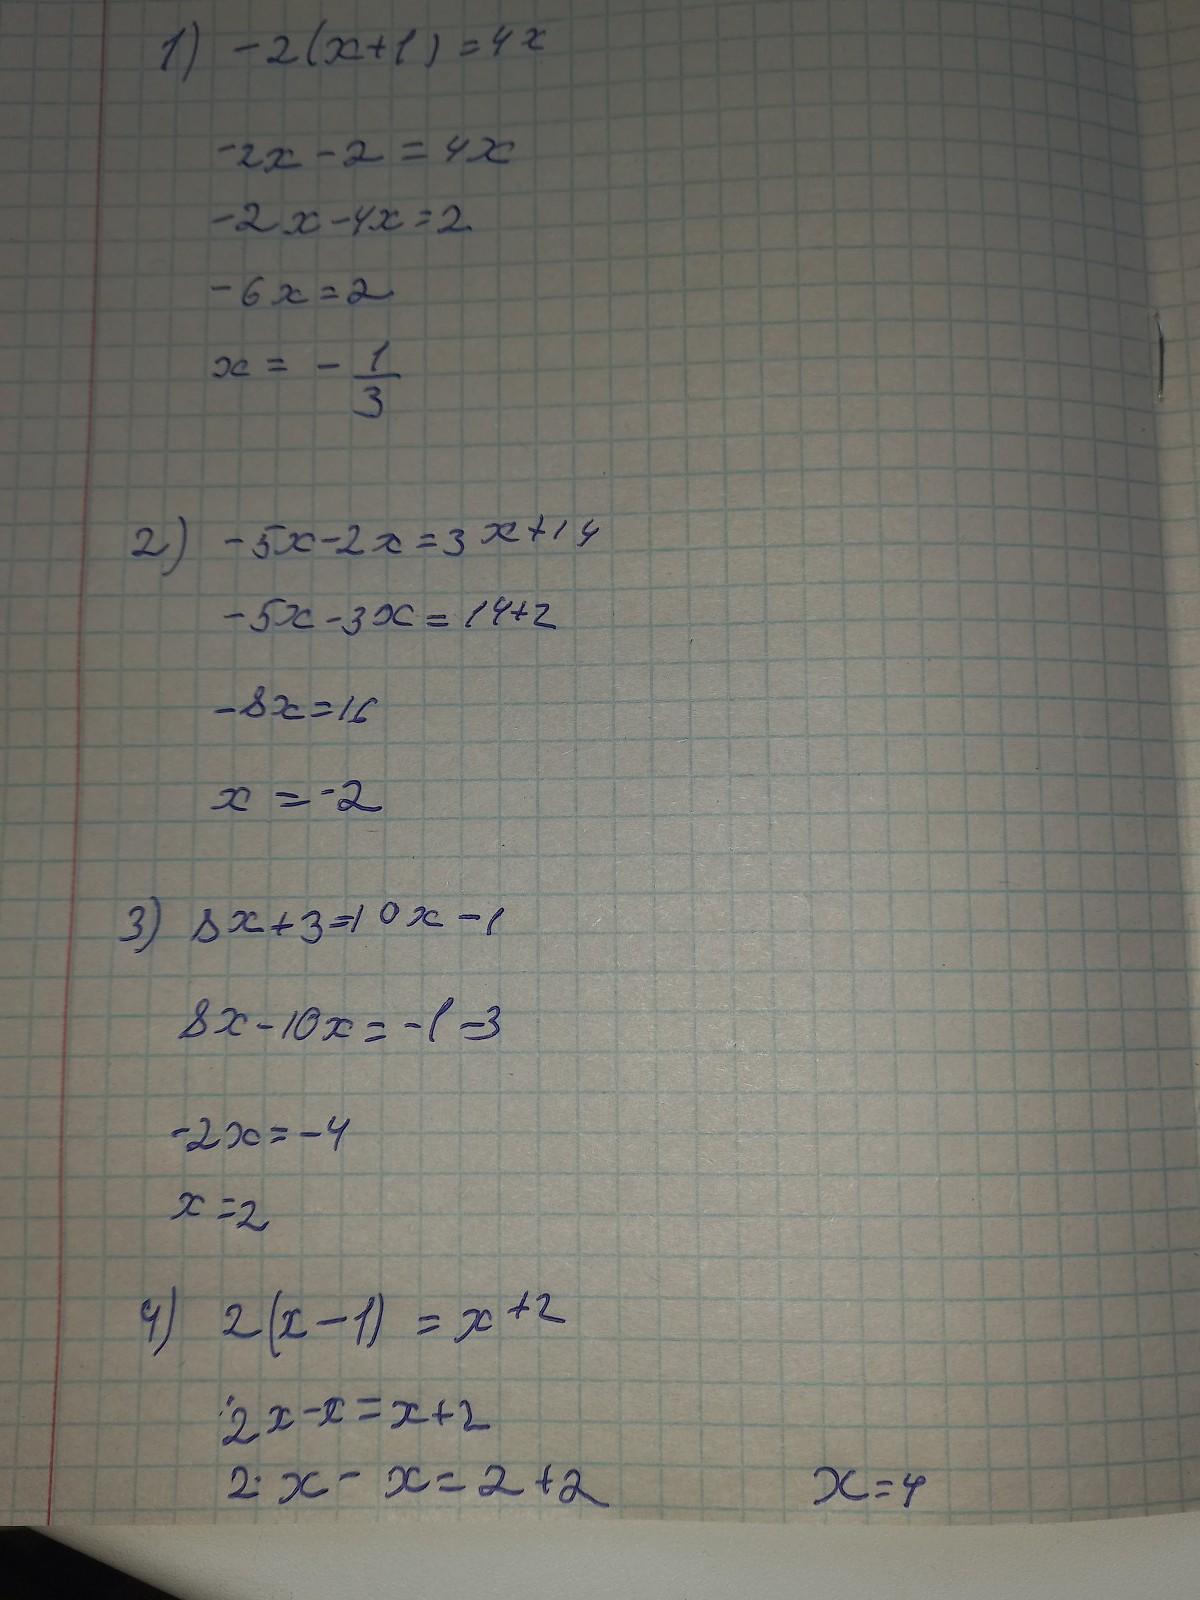 1) -2(x+1)=4x
-2x-2=4x
-2x-4x=2
-6x=2
x= -1/3
2) -5x-2x=3x+14
-5x-3x=14+2
-8x=16
x=-2
3) 8x+3=10x-1
8x-10x=-1-3
-2x=-4
x=2
4) 2(x-1)=x+2
2x-x=x+2
2x-x=2+2 x=4